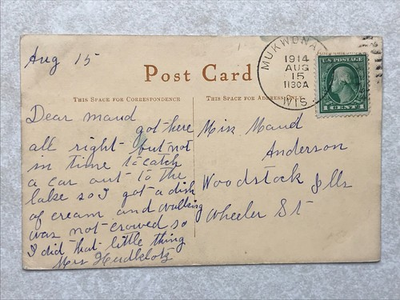 Aug 15
Post Card
THIS SPACE FOR CORRESPONDENCE
THIS SPACE FOR ADDRESS ONLY
MUKWONA
1914
AUG
15
1130A
WIS.
U.S. POSTAGE
1 CENT 1
Dear maud
got here
all right but not
in time to catch
a car out to the
lake so I got a dish
of cream and walking
was not crowded so
I did that little thing
Mrs
Miss Maud
Anderson
Woodstock Ills
Wheeler St